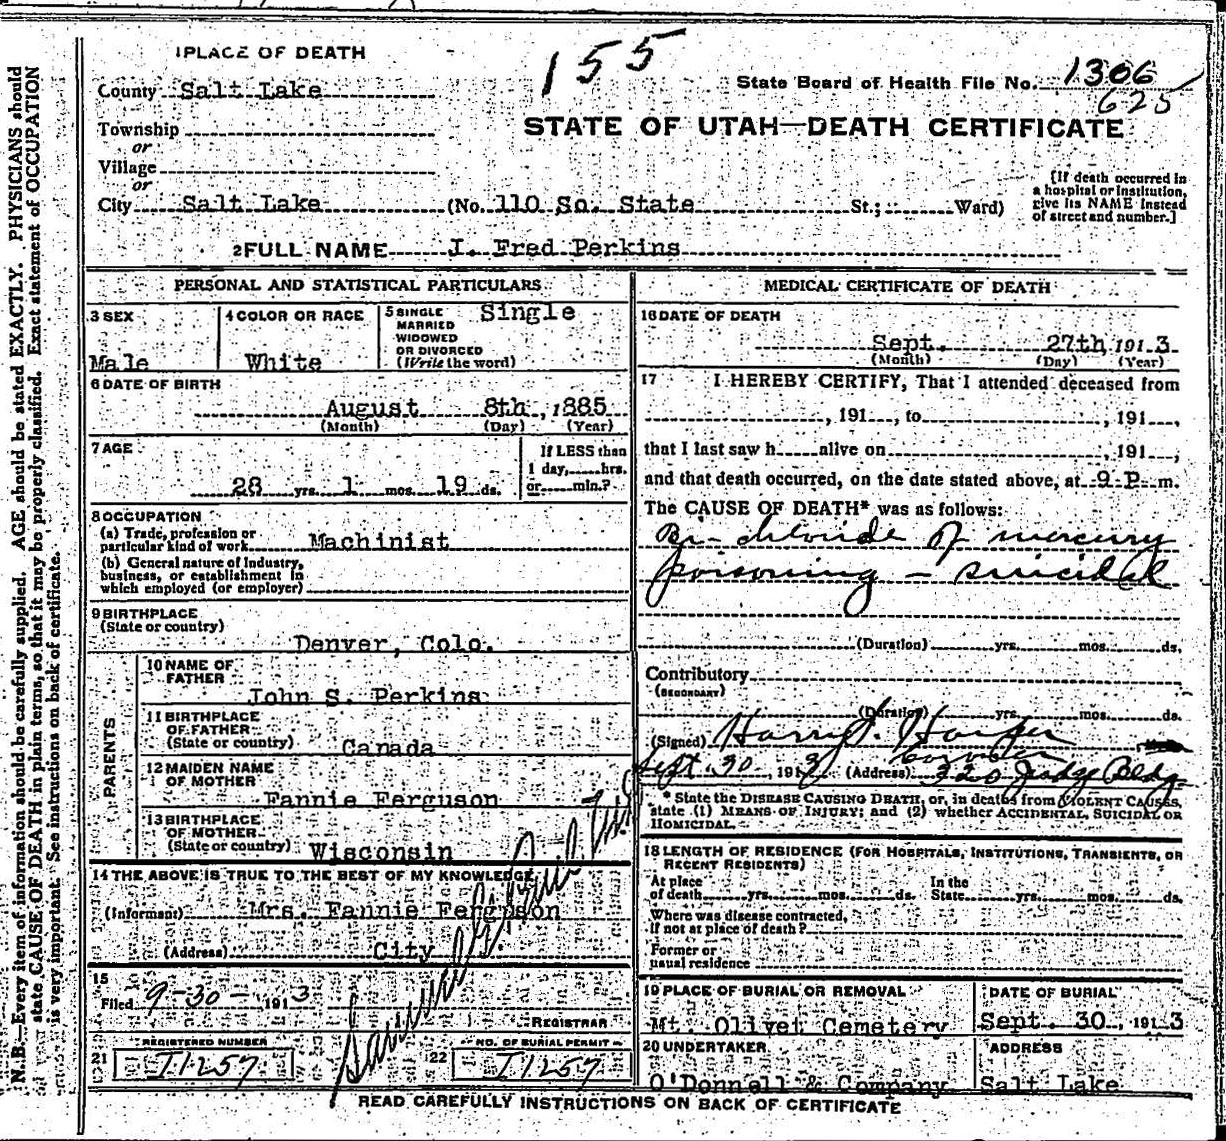 1 PLACE OF DEATH
155
County Salt Lake
State Board of Health File No. 1306
625
Township
or
STATE OF UTAH—DEATH CERTIFICATE
Village
or
City Salt Lake (No. 110 So. State St.; Ward)
[If death occurred in
a hospital or institution,
give its NAME instead
of street and number.]
2 FULL NAME J. Fred Perkins
PERSONAL AND STATISTICAL PARTICULARS
3 SEX
Male
4 COLOR OR RACE
White
5 SINGLE
MARRIED
WIDOWED
OR DIVORCED
(Write the word)
Single
6 DATE OF BIRTH
August 8th, 1885
(Month) (Day) (Year)
7 AGE
28 yrs. 1 mos. 19 ds.
If LESS than
1 day, hrs.
or min.?
8 OCCUPATION
(a) Trade, profession or
particular kind of work Machinist
(b) General nature of industry,
business, or establishment in
which employed (or employer)
9 BIRTHPLACE
(State or country)
Denver, Colo.
PARENTS
10 NAME OF
FATHER
John S. Perkins
11 BIRTHPLACE
OF FATHER
(State or country) Canada
12 MAIDEN NAME
OF MOTHER
Fannie Ferguson
13 BIRTHPLACE
OF MOTHER
(State or country) Wisconsin
14 THE ABOVE IS TRUE TO THE BEST OF MY KNOWLEDGE
(Informant) Mrs. Fannie Ferguson
(Address) City
15
Filed 9-30-1913
REGISTRAR
Samuel G. Paul
21 REGISTERED NUMBER
I1257
22 NO. OF BURIAL PERMIT
I1257
MEDICAL CERTIFICATE OF DEATH
16 DATE OF DEATH
Sept. 27th, 1913
(Month) (Day) (Year)
17 I HEREBY CERTIFY, That I attended deceased from
, 191 , to , 191 ,
that I last saw h alive on , 191 ,
and that death occurred, on the date stated above, at 9 P m.
The CAUSE OF DEATH* was as follows:
Bi-chloride of mercury
poisoning - suicidal
(Duration) yrs. mos. ds.
Contributory
(SECONDARY)
(Duration) yrs. mos. ds.
(Signed) Harry S. Harper
coroner
Sept. 30, 1913 (Address) 320 Judge Bldg.
* State the DISEASE CAUSING DEATH, or, in deaths from VIOLENT CAUSES,
state (1) MEANS OF INJURY; and (2) whether ACCIDENTAL, SUICIDAL OR
HOMICIDAL.
18 LENGTH OF RESIDENCE (FOR HOSPITALS, INSTITUTIONS, TRANSIENTS, OR
RECENT RESIDENTS)
At place
of death yrs. mos. ds.
In the
State yrs. mos. ds.
Where was disease contracted,
If not at place of death?
Former or
usual residence
19 PLACE OF BURIAL OR REMOVAL
Mt. Olivet Cemetery
DATE OF BURIAL
Sept. 30, 1913
20 UNDERTAKER
O'Donnell & Company
ADDRESS
Salt Lake
READ CAREFULLY INSTRUCTIONS ON BACK OF CERTIFICATE
N. B.—Every item of information should be carefully supplied. AGE should be stated EXACTLY. PHYSICIANS should
state CAUSE OF DEATH in plain terms, so that it may be properly classified. Exact statement of OCCUPATION
is very important. See instructions on back of certificate.